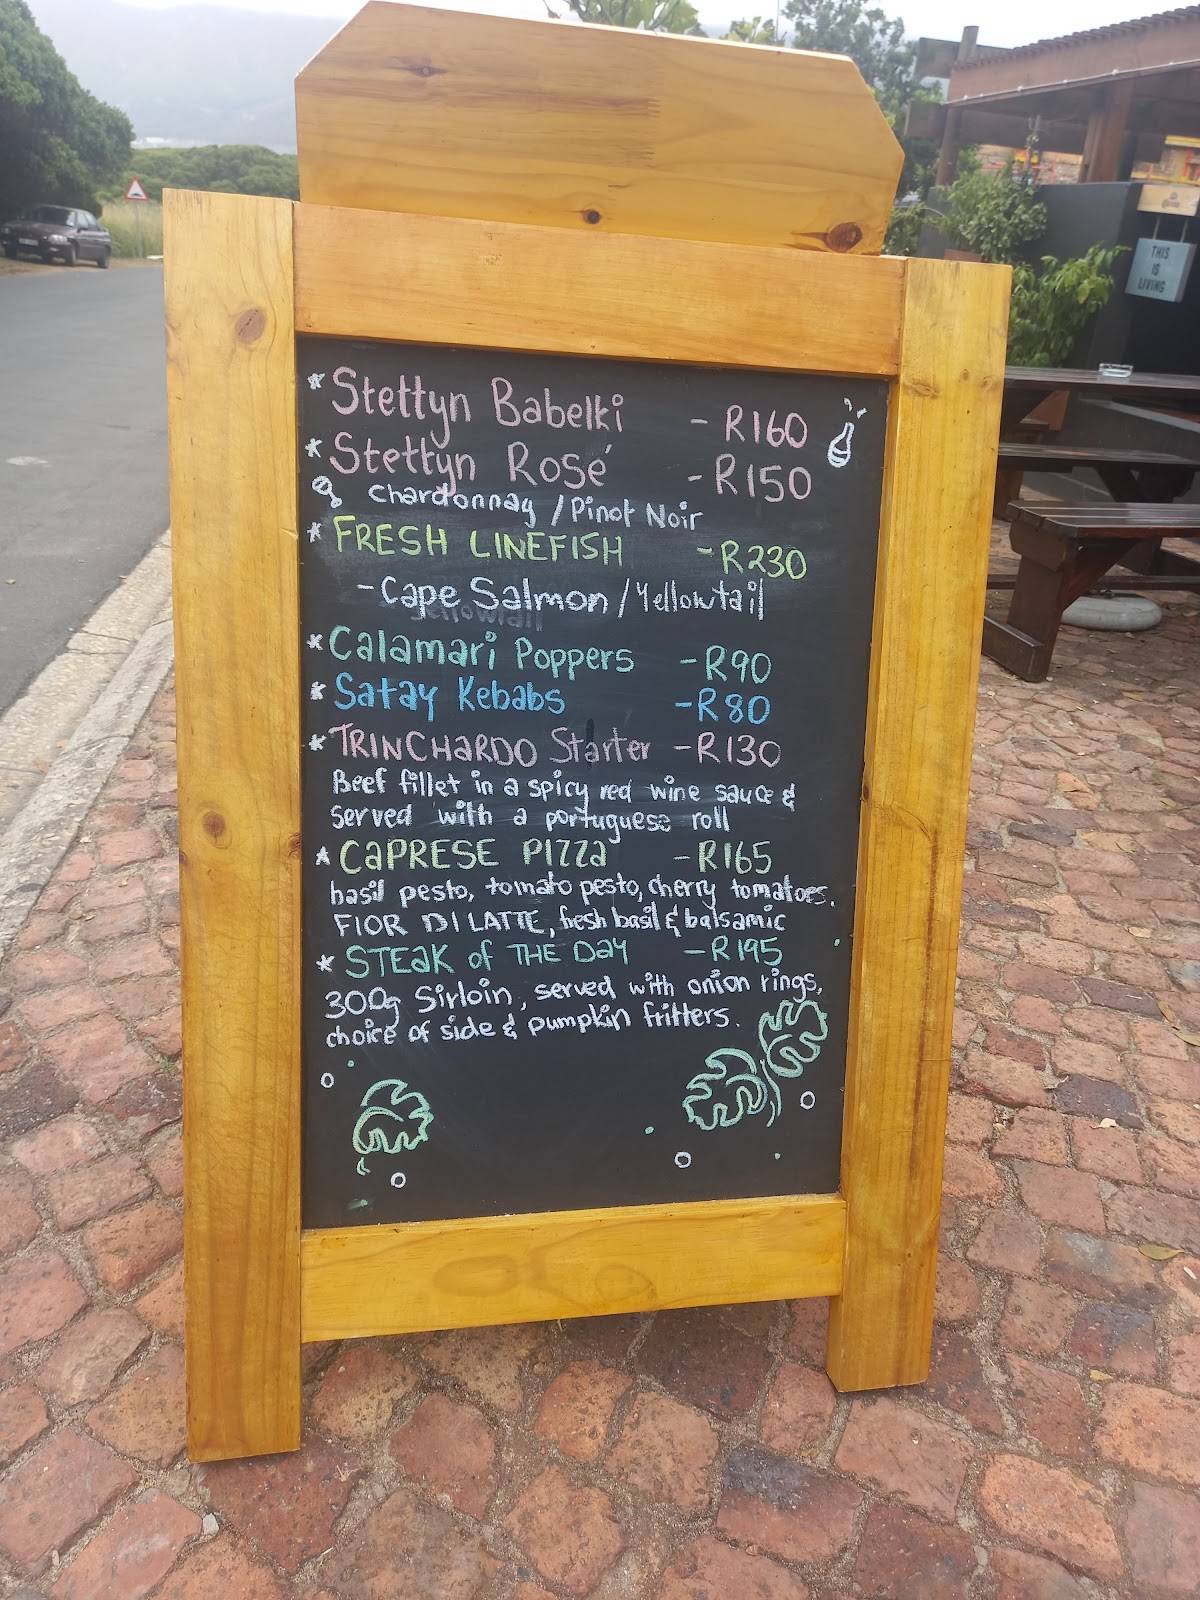 THIS
IS
LIVING
* Stettyn Babelki - R160
* Stettyn Rosé - R150
Chardonnay / Pinot Noir
* FRESH LINEFISH - R230
- Cape Salmon / Yellowtail
* Calamari Poppers - R90
* Satay Kebabs - R80
* TRINCHARDO Starter - R130
Beef fillet in a spicy red wine sauce &
served with a portuguese roll
* CAPRESE PIZZA - R165
basil pesto, tomato pesto, cherry tomatoes.
FIOR DI LATTE, fresh basil & balsamic
* STEAK of THE DAY - R195
300g Sirloin, served with onion rings,
choice of side & pumpkin fritters.